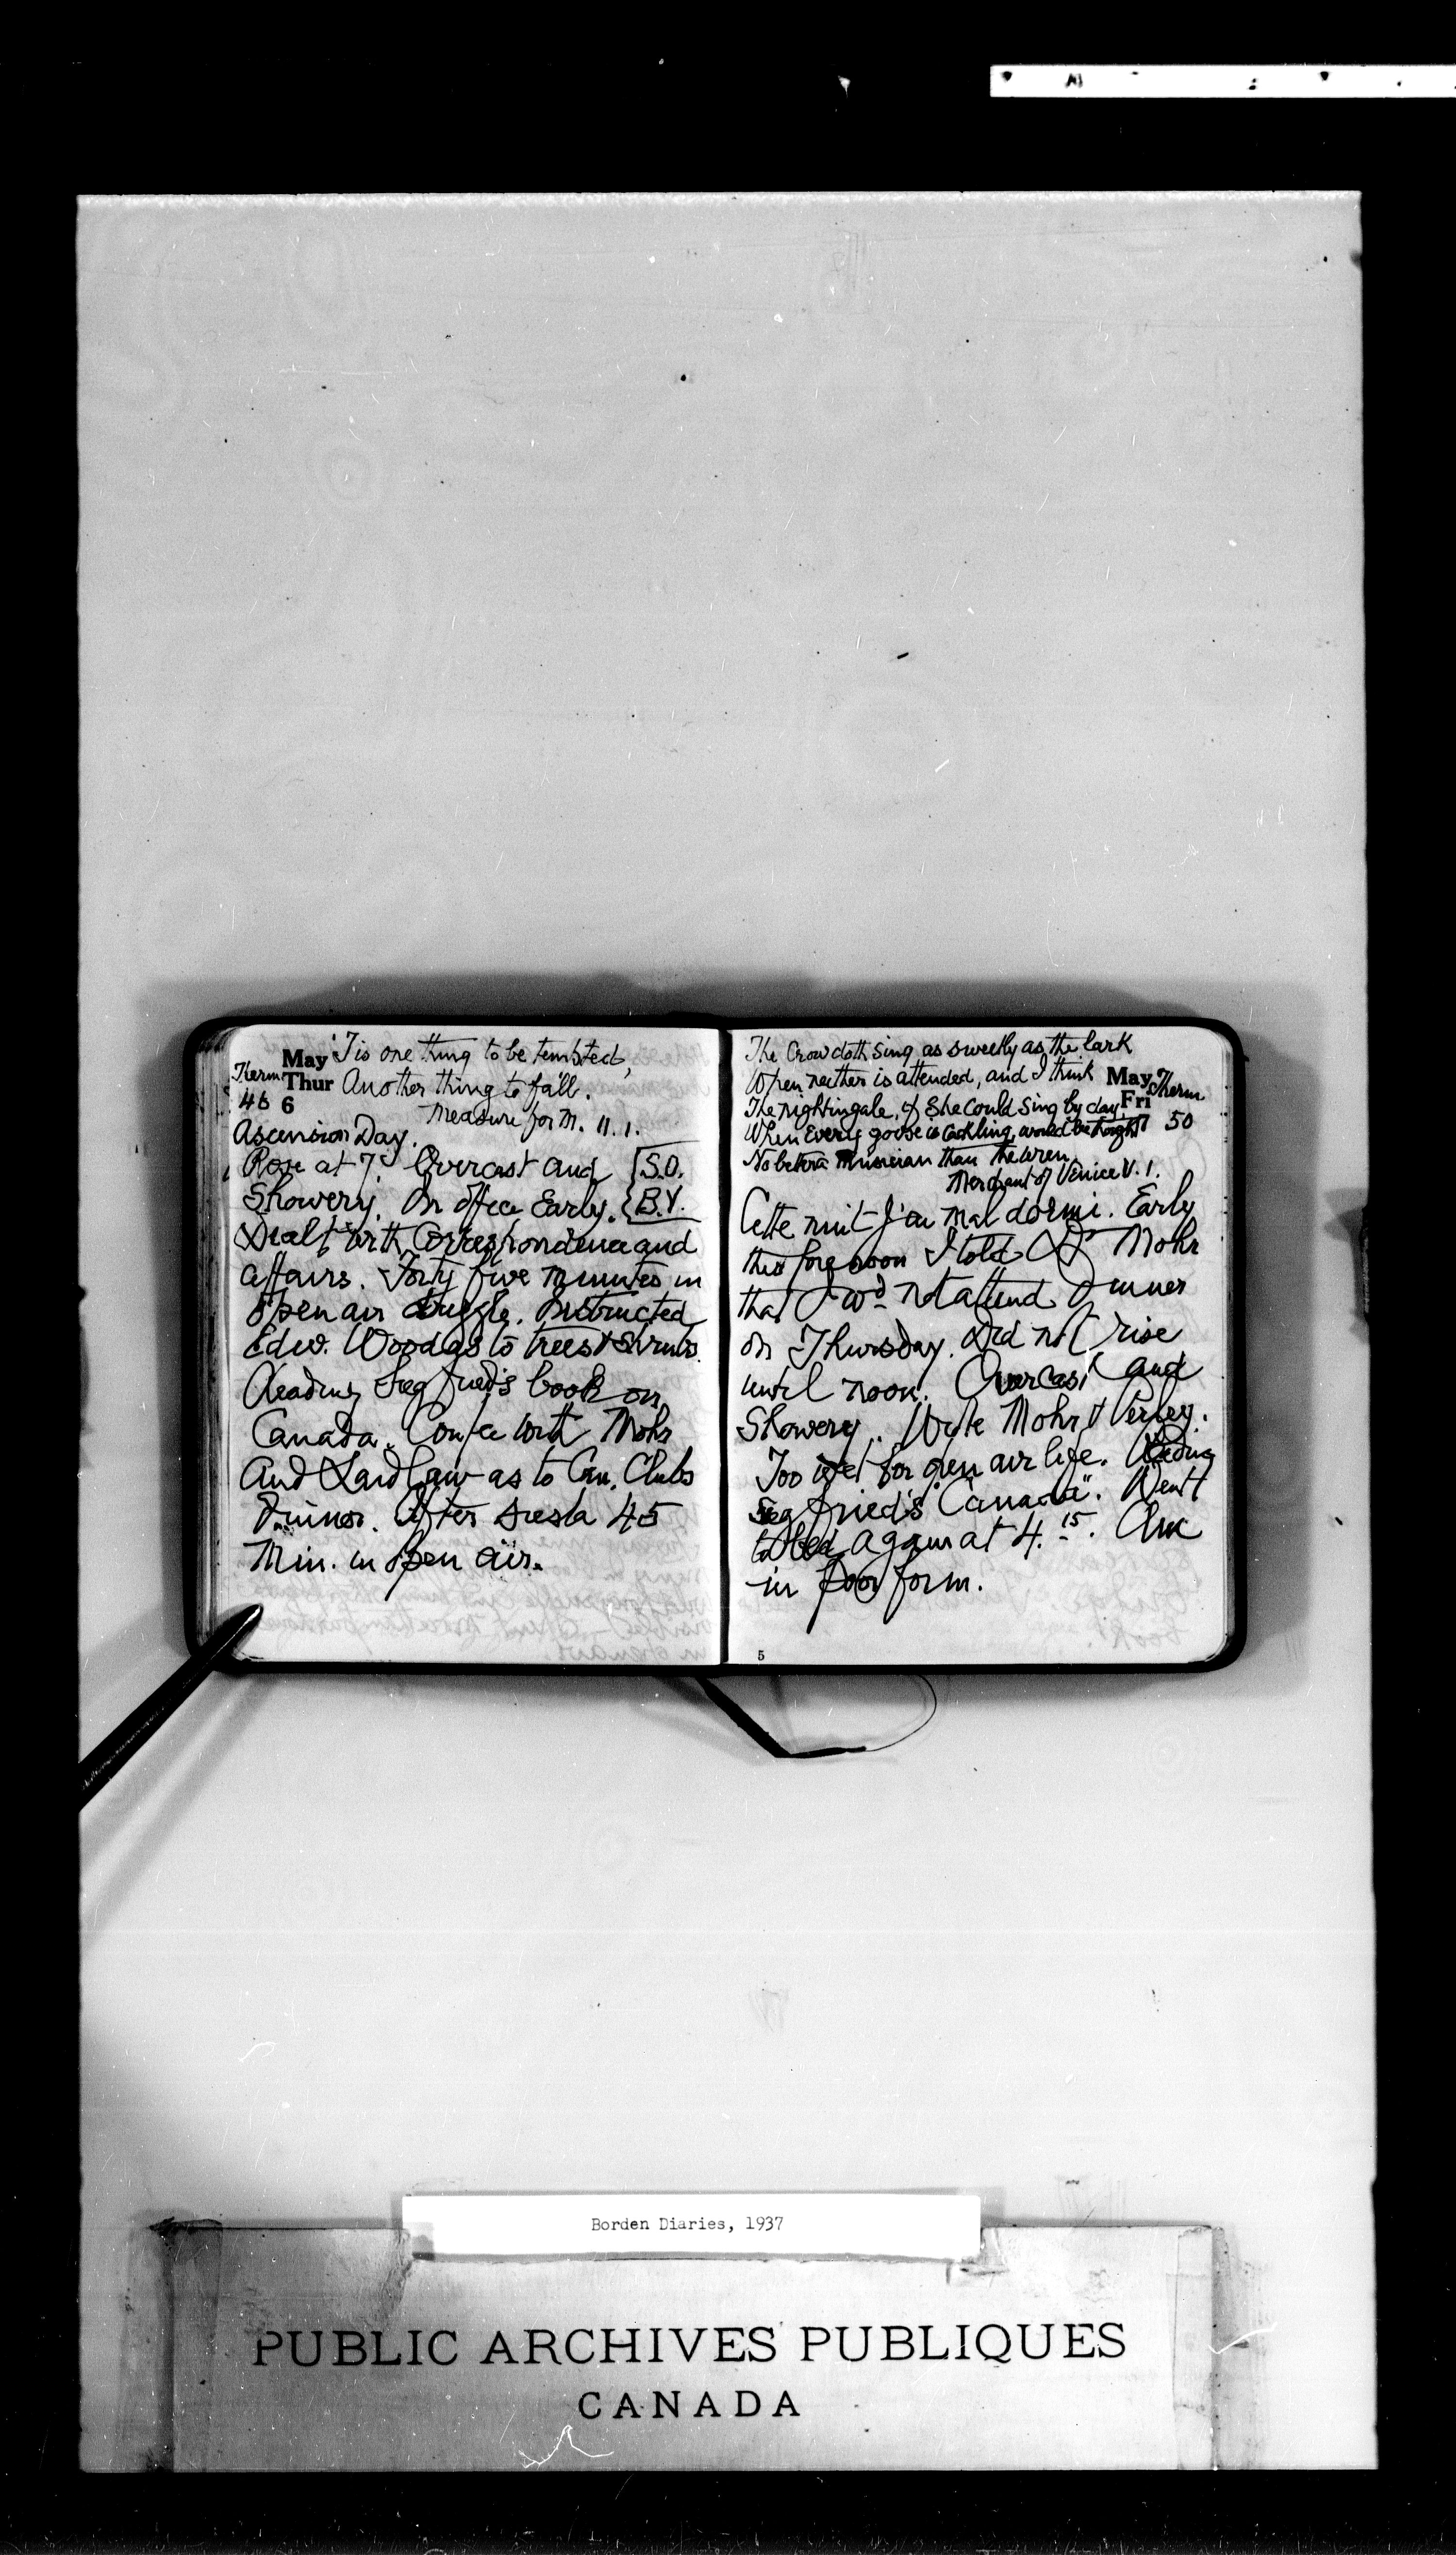 May
Thur
6
Therm
46
'Tis one thing to be tempted,
Another thing to fall.
Measure for M. II. 1.
Ascension Day.
Rose at 7. Overcast and [S.O.
Showery. In office Early. {B.Y.
Dealt with Correspondence and
affairs. Forty five minutes in
open air. Instructed
Edw. Wood as to trees & shrubs.
Reading Siegfried's book on
Canada. Confce with Mohr
And Laidlaw as to Can. Clubs
Dinner. After siesta 45
Min. in open air.
The Crow doth sing as sweetly as the lark
When neither is attended, and I think
The nightingale, if She Could Sing by day
When Every goose is Cackling, would be thought
No better a Musician than the wren
Merchant of Venice V. 1.
May
Fri
Therm
50
Cette nuit J'ai mal dormi. Early
this forenoon I told Dr Mohr
that I wd not attend Dinner
on Thursday. Did not rise
until noon. Overcast and
Showery. Wrote Mohr &
Too wet for open air life. Reading
Siegfried's "Canada". Went
to Bed again at 4.15. Am
in poor form.
5
Borden Diaries, 1937
PUBLIC ARCHIVES PUBLIQUES
CANADA